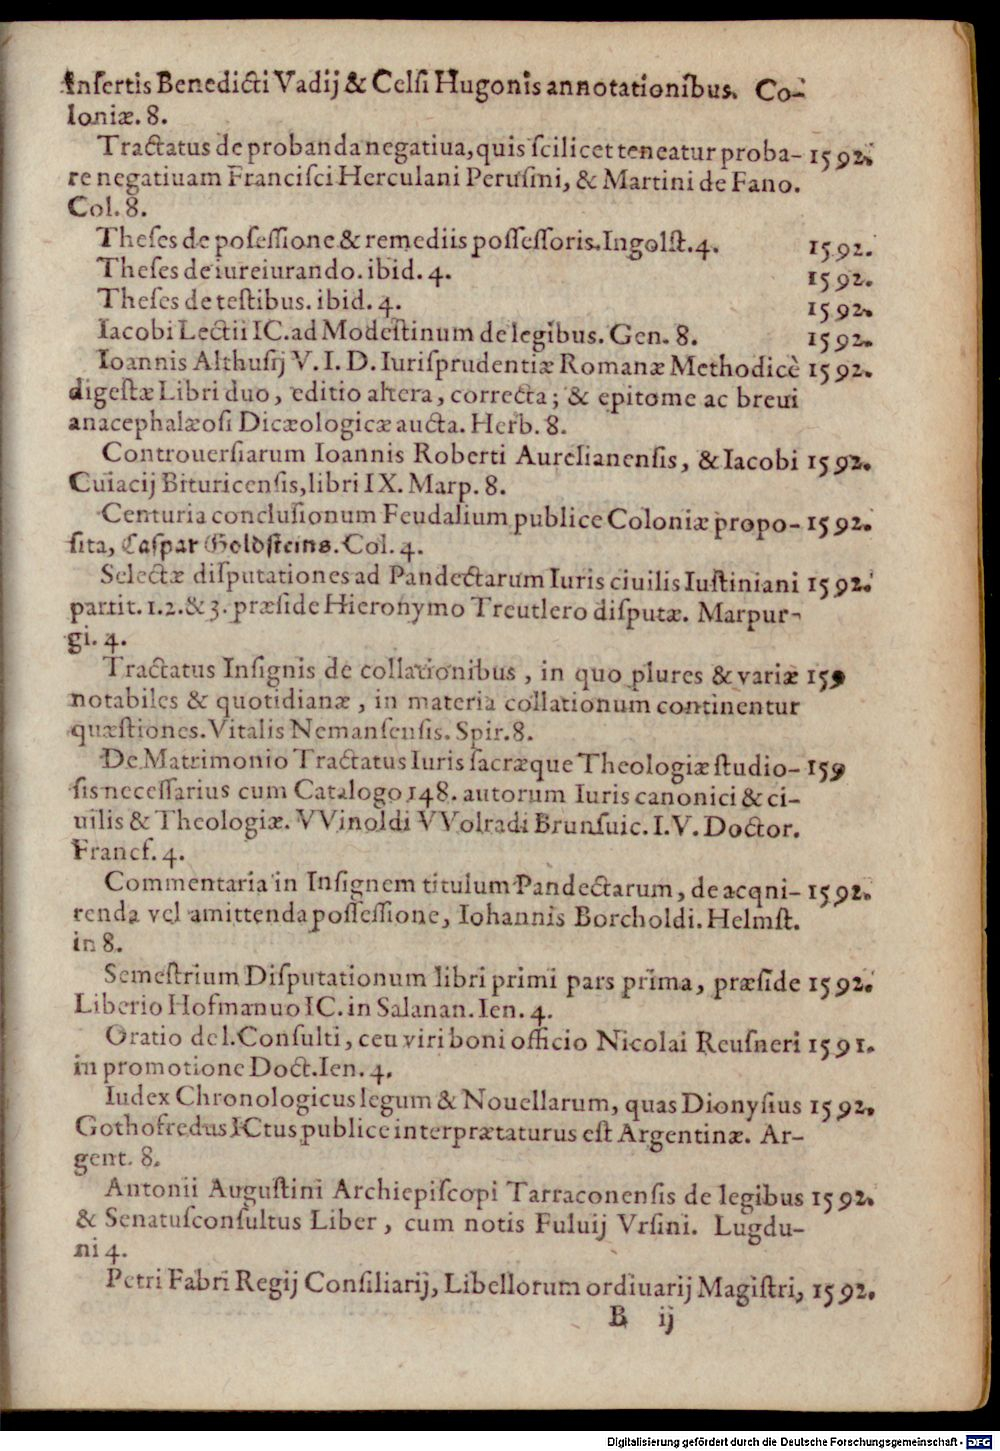 Inſertis Benedicti Vadij & Celſi Hugonis annotationibus. Co-
loniæ. 8.
Tractatus de probanda negatiua, quis ſcilicet teneatur proba- 1592.
re negatiuam Franciſci Herculani Peruſini, & Martini de Fano.
Col. 8.
Theſes de poſeſſione & remediis poſſeſſoris. Ingolſt. 4. 1592.
Theſes de iureiurando. ibid. 4. 1592.
Theſes de teſtibus. ibid. 4. 1592.
Iacobi Lectii IC. ad Modeſtinum de legibus. Gen. 8. 1592.
Ioannis Althuſij V. I. D. Iuriſprudentiæ Romanæ Methodicè 1592.
digeſtæ Libri duo, editio altera, correcta; & epitome ac breui
anacephalæoſi Dicæologicæ aucta. Herb. 8.
Controuerſiarum Ioannis Roberti Aurelianenſis, & Iacobi 1592.
Cuiacij Bituricenſis, libri IX. Marp. 8.
Centuria concluſionum Feudalium publice Coloniæ propo- 1592.
ſita, Caſpar Goldſteins. Col. 4.
Selectæ diſputationes ad Pandectarum Iuris ciuilis Iuſtiniani 1592.
partit. 1. 2. & 3. præſide Hieronymo Treutlero diſputæ. Marpur-
gi. 4.
Tractatus Inſignis de collationibus, in quo plures & variæ 159
notabiles & quotidianæ, in materia collationum continentur
quæſtiones. Vitalis Nemanſenſis. Spir. 8.
De Matrimonio Tractatus Iuris ſacræque Theologiæ ſtudio- 159
ſis neceſſarius cum Catalogo 148. autorum Iuris canonici & ci-
uilis & Theologiæ. VVinoldi VVolradi Brunſuic. I. V. Doctor.
Francf. 4.
Commentaria in Inſignem titulum Pandectarum, de acqni- 1592.
renda vel amittenda poſſeſſione, Iohannis Borcholdi. Helmſt.
in 8.
Semeſtrium Diſputationum libri primi pars prima, præſide 1592.
Liberio Hofmanuo IC. in Salanan. Ien. 4.
Oratio de I. Conſulti, ceu viri boni officio Nicolai Reuſneri 1591.
in promotione Doct. Ien. 4.
Iudex Chronologicus legum & Nouellarum, quas Dionyſius 1592.
Gothofredus ICtus publice interprætaturus eſt Argentinæ. Ar-
gent. 8.
Antonii Auguſtini Archiepiſcopi Tarraconenſis de legibus 1592.
& Senatuſconſultus Liber, cum notis Fuluij Vrſini. Lugdu-
ni 4.
Petri Fabri Regij Conſiliarij, Libellorum ordiuarij Magiſtri, 1592.
B ij
Digitalisierung gefördert durch die Deutsche Forschungsgemeinschaft - DFG